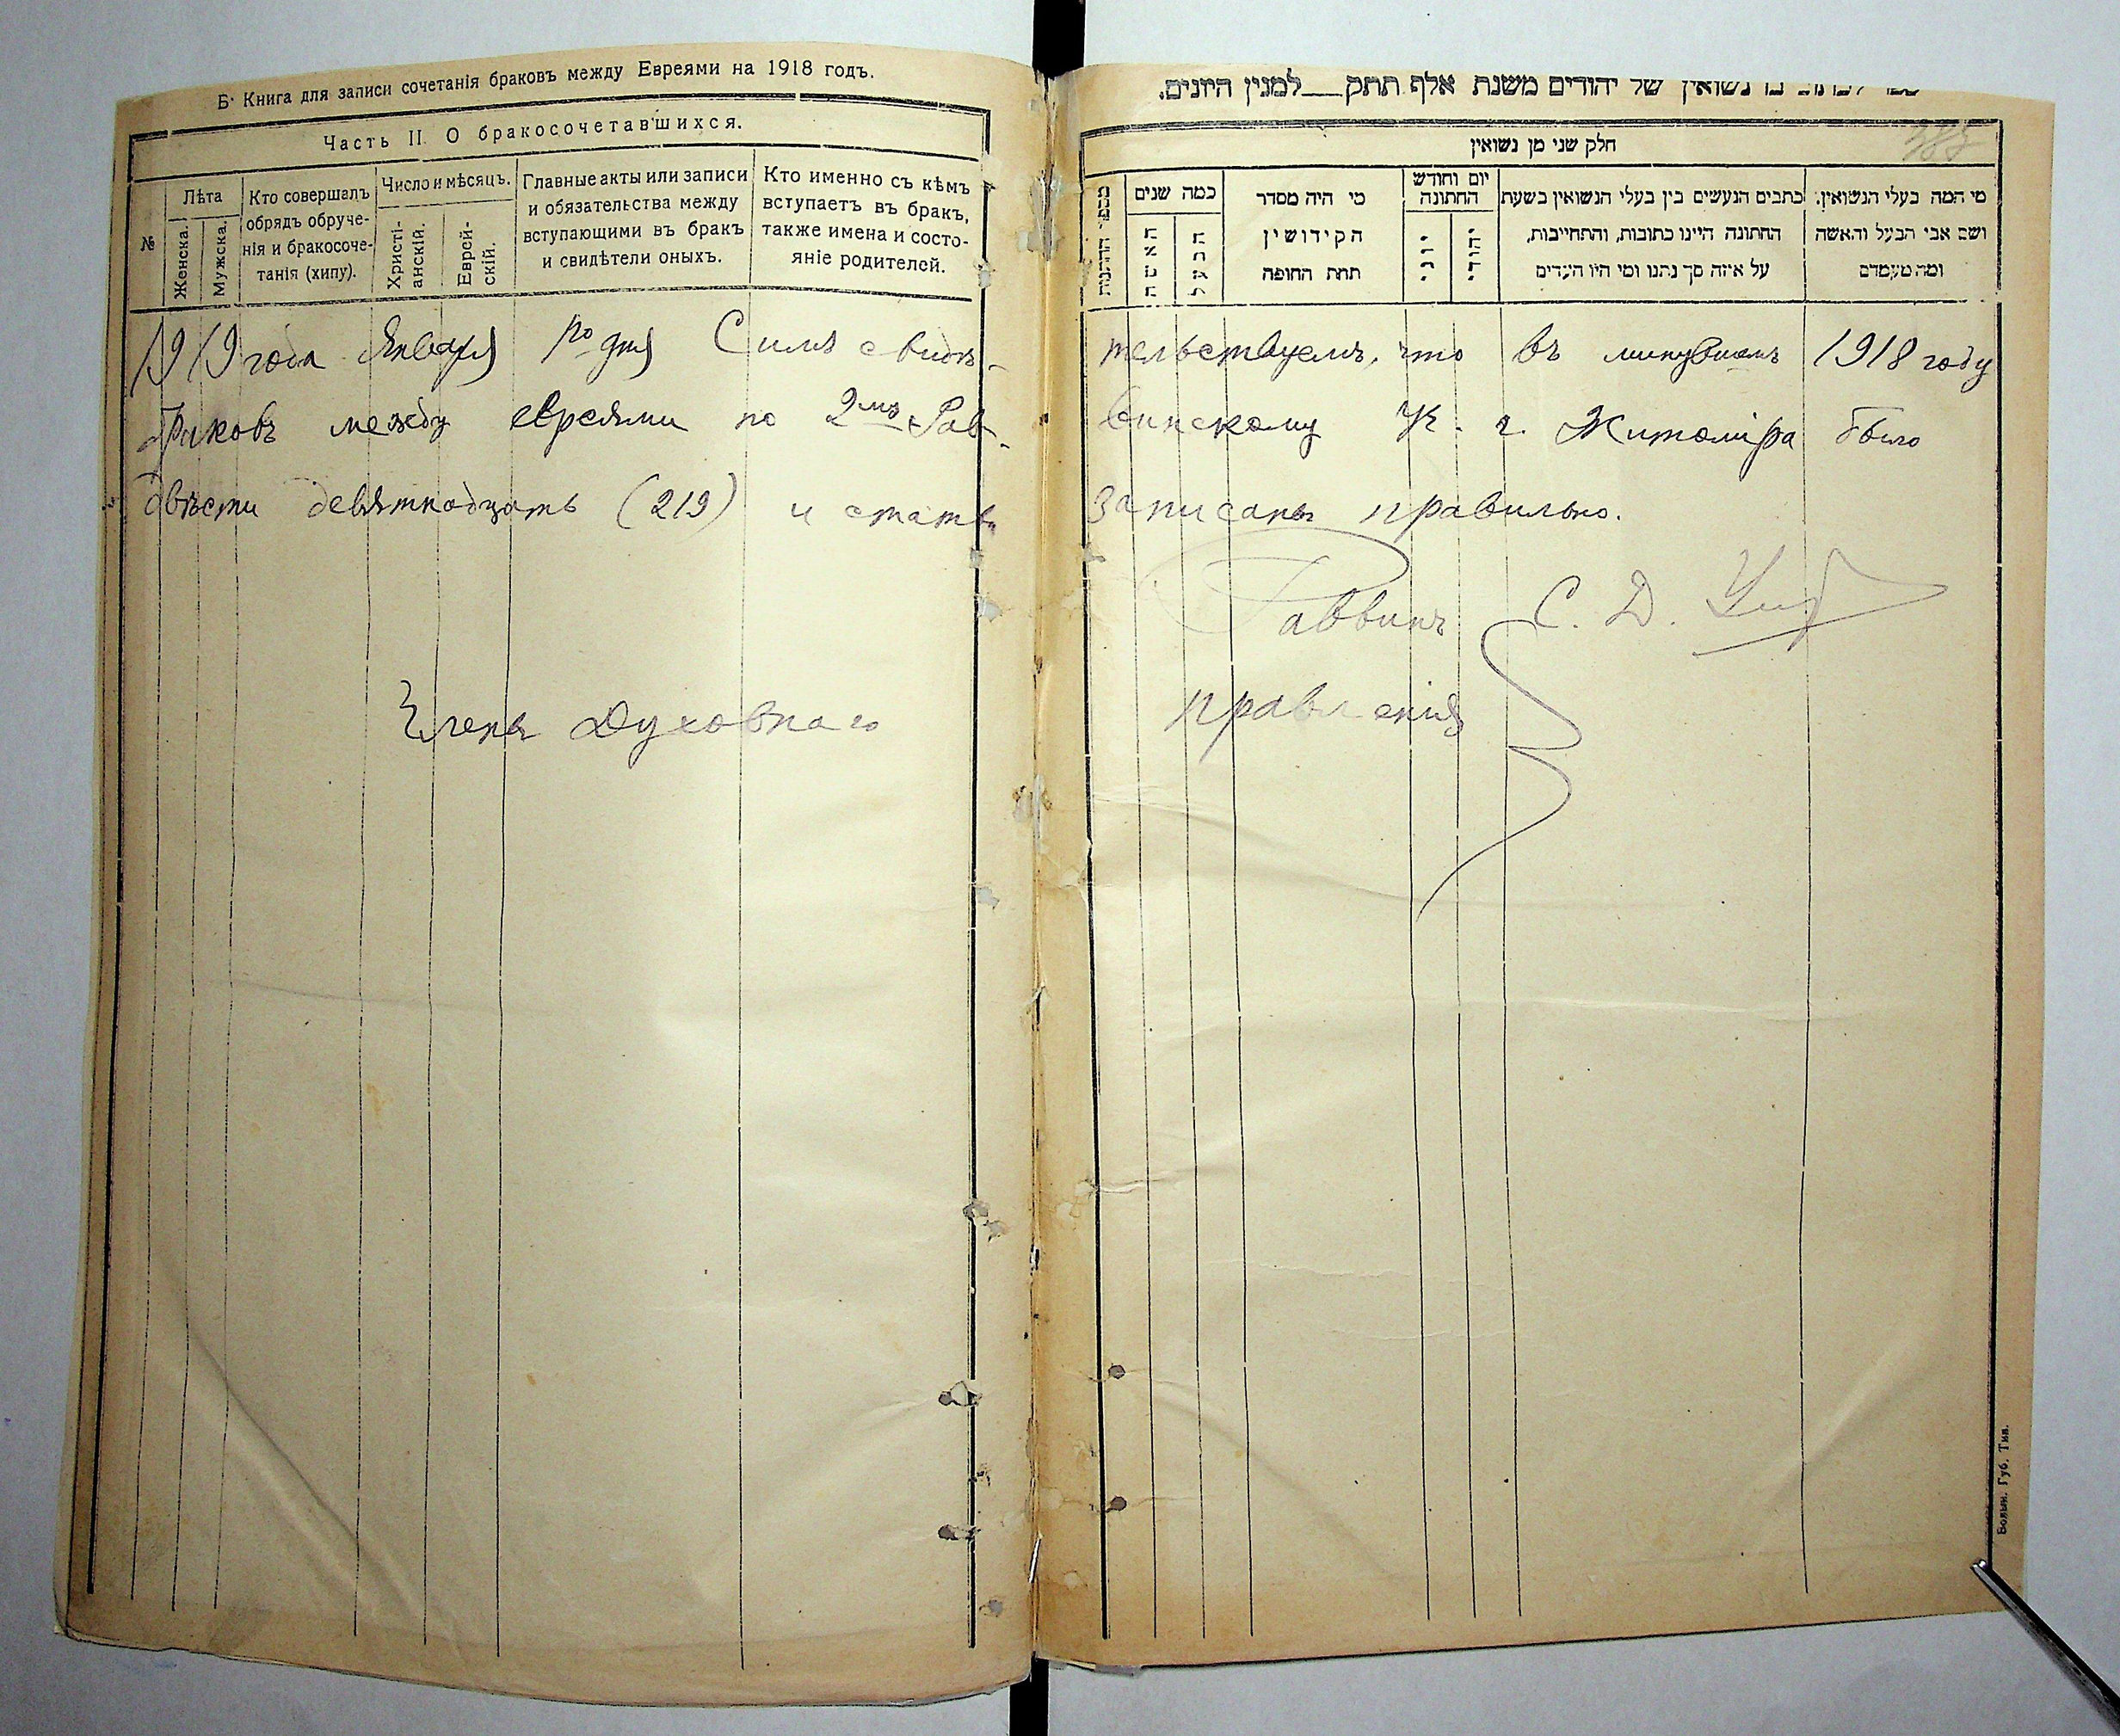 Б. Книга для записи сочетанія браковъ между Евреями на 1918 годъ.
Часть II. О бракосочетавшихся.
№
Лѣта
Женска.
Мужска.
Кто совершалъ
обрядъ обруче-
нія и бракосоче-
танія (хипу).
Число и мѣсяцъ.
Христі-
анскій.
Еврей-
скій.
Главные акты или записи
и обязательства между
вступающими въ бракъ
и свидѣтели оныхъ.
Кто именно съ кѣмъ
вступаетъ въ бракъ,
также имена и состо-
яніе родителей.
1919 года Января дня Симъ свидѣ-
браковъ между евреями по 2му Рав-
двѣсти девятнадцать (219) и статьи
Члены Духовнаго
נשואין של יהודים משנת אלף תתק__למנין היונים.
חלק שני מן נשואין
כמה שנים
האשה
הבעל
מי היה מסדר
הקידושין
תחת החופה
יום וחודש
החתונה
יוני
יהודי
כתבים הנעשים בין בעלי הנשואין בשעת
החתונה היינו כתובות, והתחייבות,
על איזה סך נתנו ומי היו העדים
מי המה בעלי הנשואין,
ושם אבי הבעל והאשה
ומה מעמדם
тельствуемъ, что въ минувшемъ 1918 году
винскому У. г. Житоміра было
записаны правильно.
Раввинъ С. Д.
правленія
Волын. Губ. Тип.